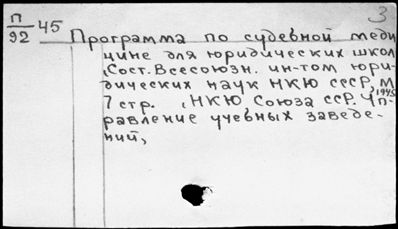 П
92
45
3
Программа по судебной меди
цине для юридических школ
, Сост. Всесоюзн. ин-том юри-
дических наук НКЮ СССР, М
1945
7 стр. , НКЮ, Союза ССР. Уп-
равление учебных заведе-
ний,